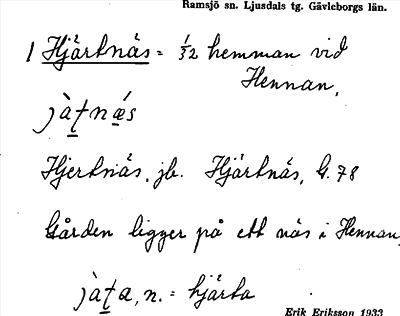 Ramsjö sn. Ljusdals tg. Gävleborgs län.
1 Hjärtnäs = 1/32 hemman vid
Hennan.
jàt̠nǽ̠s
Hjertnäs, jb. Hjärtnäs, G. 78
Gården ligger på ett näs i Hennan.
jàt̠a, n. = hjärta
Erik Eriksson 1933